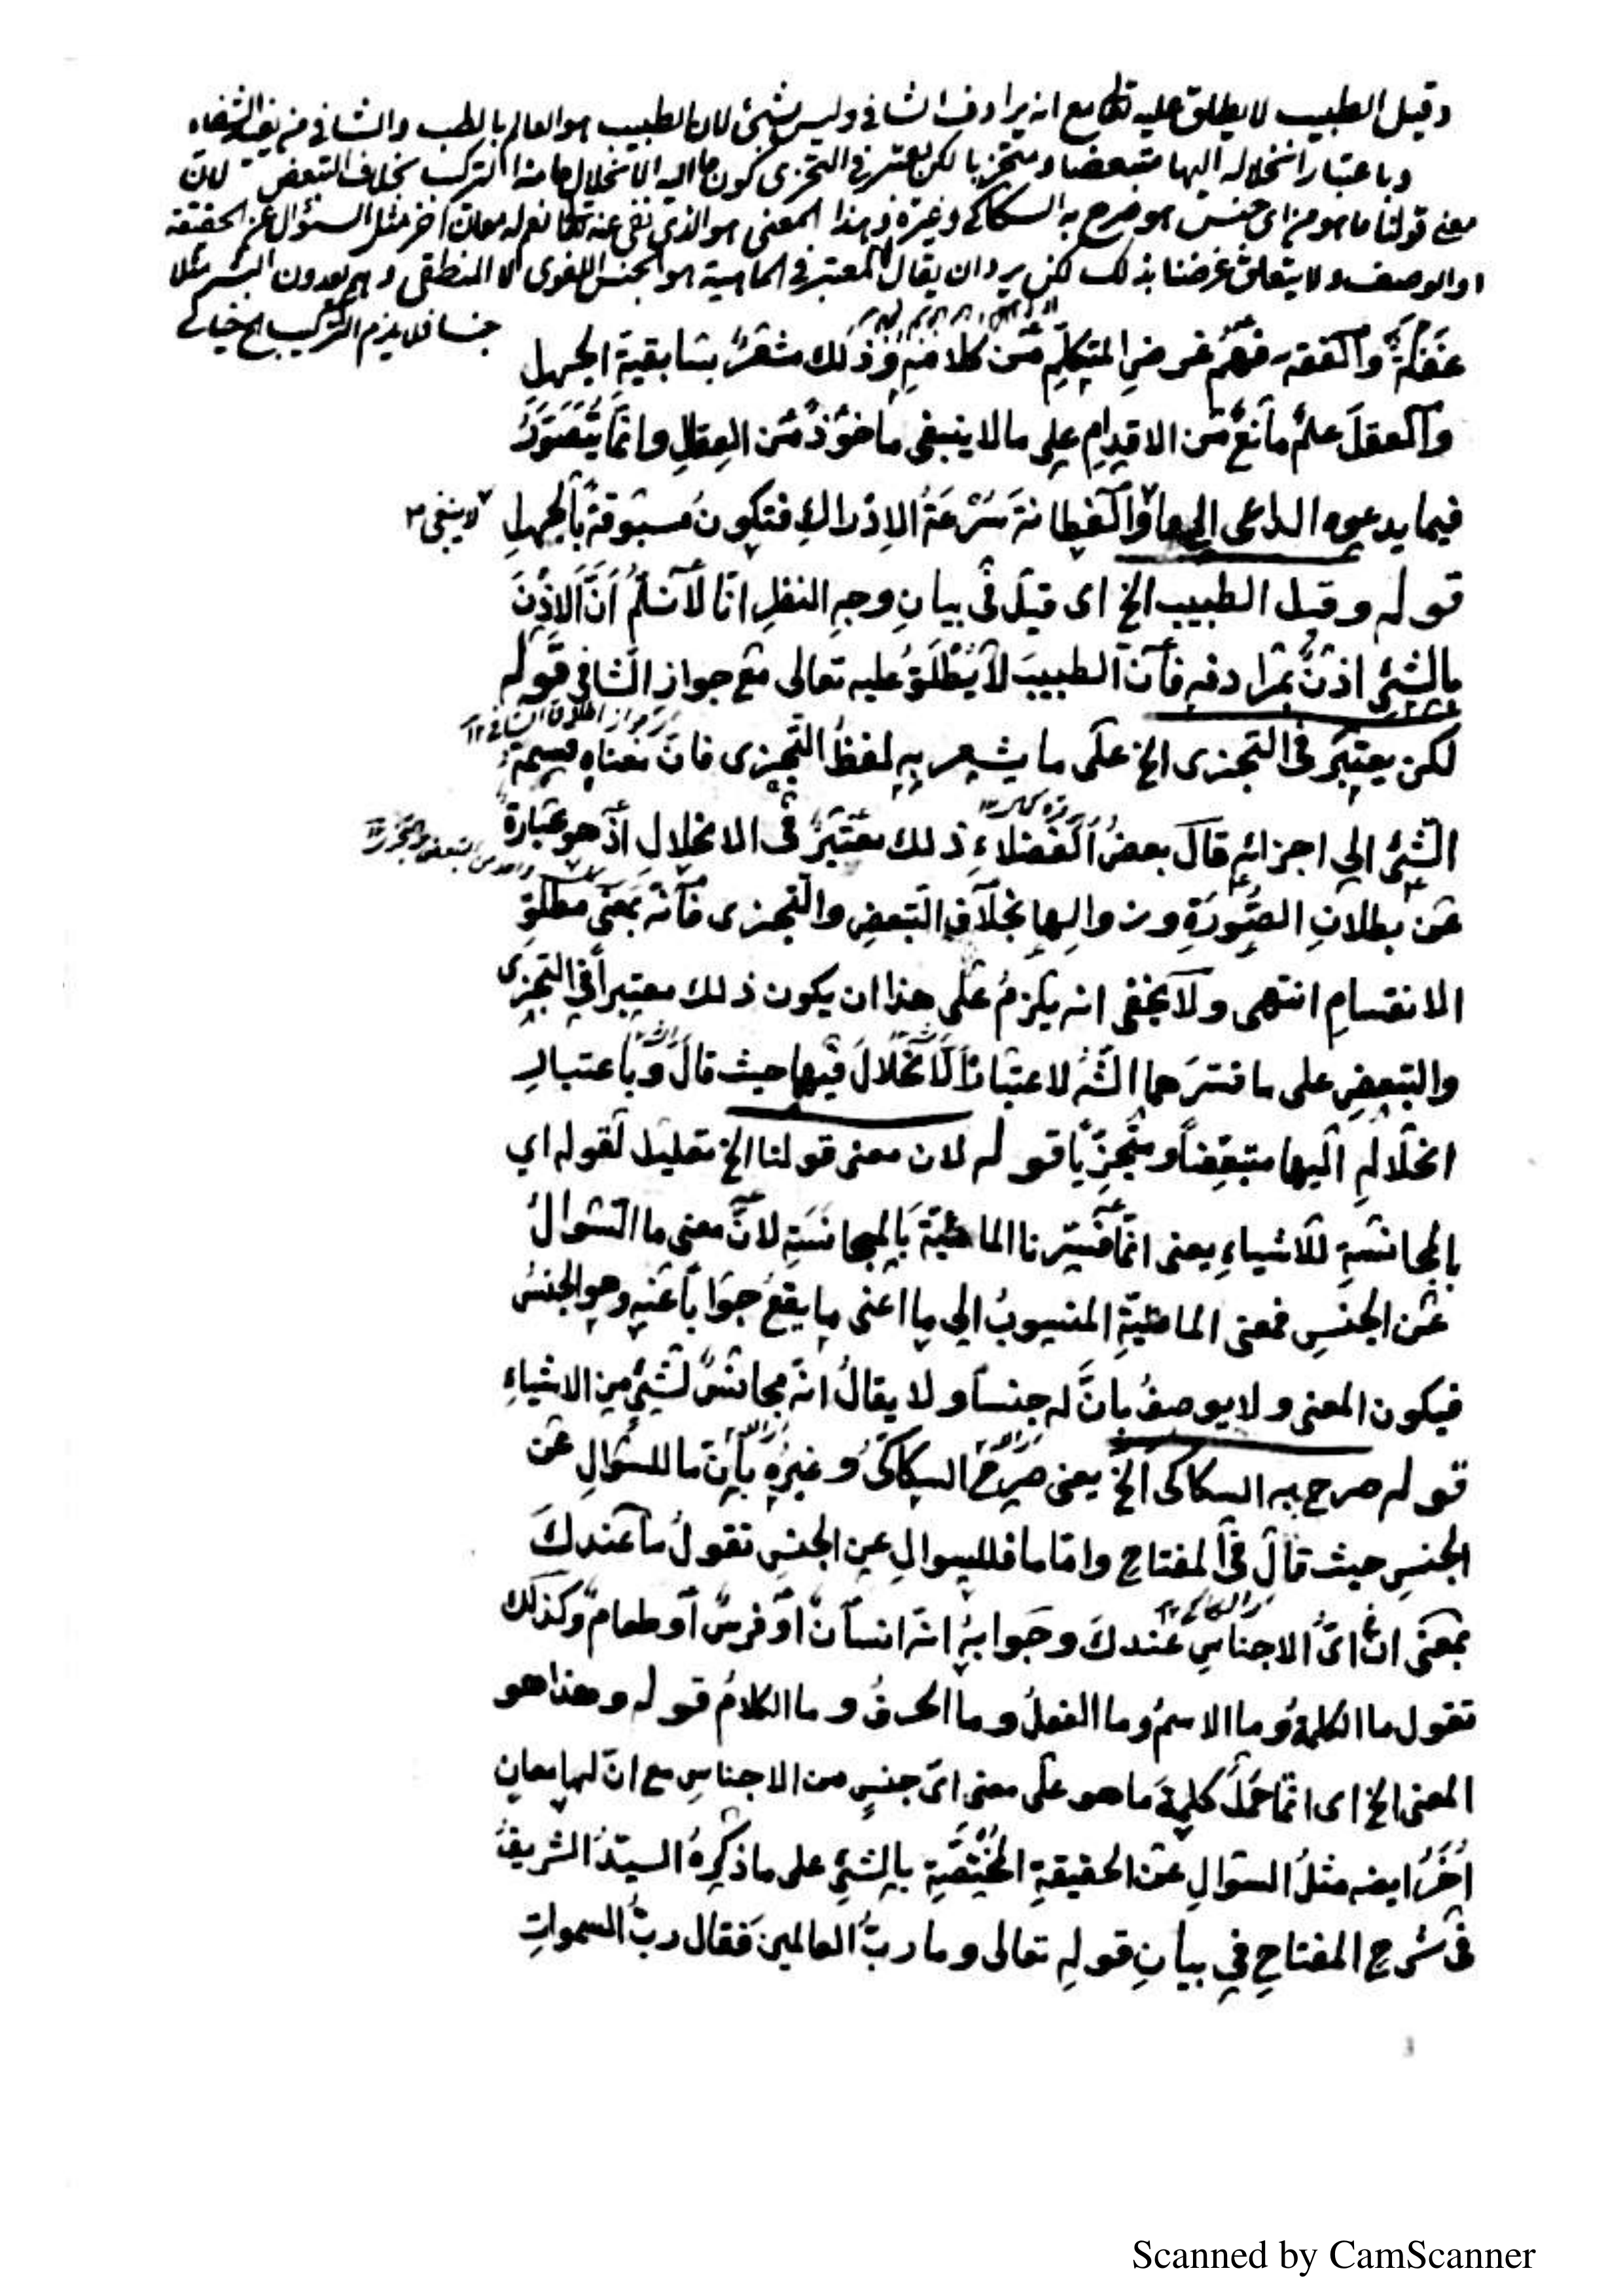 وقيل الطبيب لا يطلق عليه تعا مع انه يرادف الشافى وليس بشئ لان الطبيب هو العالم بالطب والشافى من يفيد الشفاء
وباعتبار انحلاله اليها متبعضا ومتجزيا لكن يعتبر فى التجزى كون ما اليه الانحلال ما منه التركب بخلاف التبعض لان
معنى قولنا ما هو من اى جنس هو صرح به السكاكى وغيره وهذا المعنى هو الذى نفى عنه تعا نعم له معان اخر مثل السؤال عن الحقيقة
او الوصف ولا يتعلق غرضنا بذلك لكن يرد ان يقال المعتبر فى الماهية هو الجنس اللغوى لا المنطقى وهم يعدون البشر مثلا
جنسا فلا يلزم التركيب الخ خيالى
غفلة والفقه فهم غرض المتكلم من كلامه وذلك مشعر بسابقية الجهل
والعقل علم مانع من الاقدام على ما لا ينبغى ماخوذ من العقال وانما يتصور
فيما يدعوه الداعى الى ما والفطانة سرعة الادراك فتكون مسبوقة بالجهل
لا ينبغى
قوله وقيل الطبيب الخ اى قيل فى بيان وجه النظر انا لا نسلم ان الاذن
بالشئ اذن بمرادفه فان الطبيب لا يطلق عليه تعالى مع جواز الشافى قوله
لكن يعتبر فى التجزى الخ على ما يشعر به لفظ التجزى فان معناه قسمة
الشئ الى اجزائه قال بعض الفضلاء ذلك معتبر فى الانحلال اذ هو عبارة
عن بطلان الصورة وزوالها بخلاف التبعض والتجزى فانه بمعنى مطلق
الانقسام انتهى ولا يخفى انه يلزم على هذا ان يكون ذلك معتبرا فى التجزى
والتبعض على ما فسرهما الش لاعتبار الانحلال فيها حيث قال وباعتبار
انحلاله اليها متبعضا ومتجزيا قوله لان معنى قولنا الخ تعليل لقوله اي
بالمجانسة للاشياء يعنى انما فسرنا المائية بالمجانسة لان معنى ما السؤال
عن الجنس فمعنى المائية المنسوب الى ما اعنى ما يقع جوابا عنه وهو الجنس
فيكون المعنى ولا يوصف بان له جنسا ولا يقال انه مجانس لشئ من الاشياء
قوله صرح به السكاكى الخ يعنى صرح السكاكى وغيره بان ما للسؤال عن
الجنس حيث قال فى المفتاح واما ما فللسوال عن الجنس تقول ما عندك
بمعنى ان اى الاجناس عندك وجوابه انه انسان او فرس او طعام وكذلك
تقول ما الكلمة وما الاسم وما الفعل وما الحرف وما الكلام قوله وهذا هو
المعنى الخ اى انما حمل كلمة ما هو على معنى اى جنس من الاجناس مع ان لها معان
اخر ايضه مثل السؤال عن الحقيقة المختصة بالشئ على ما ذكره السيد الشريف
فى شرح المفتاح في بيان قوله تعالى وما رب العالمين فقال رب السموات
Scanned by CamScanner